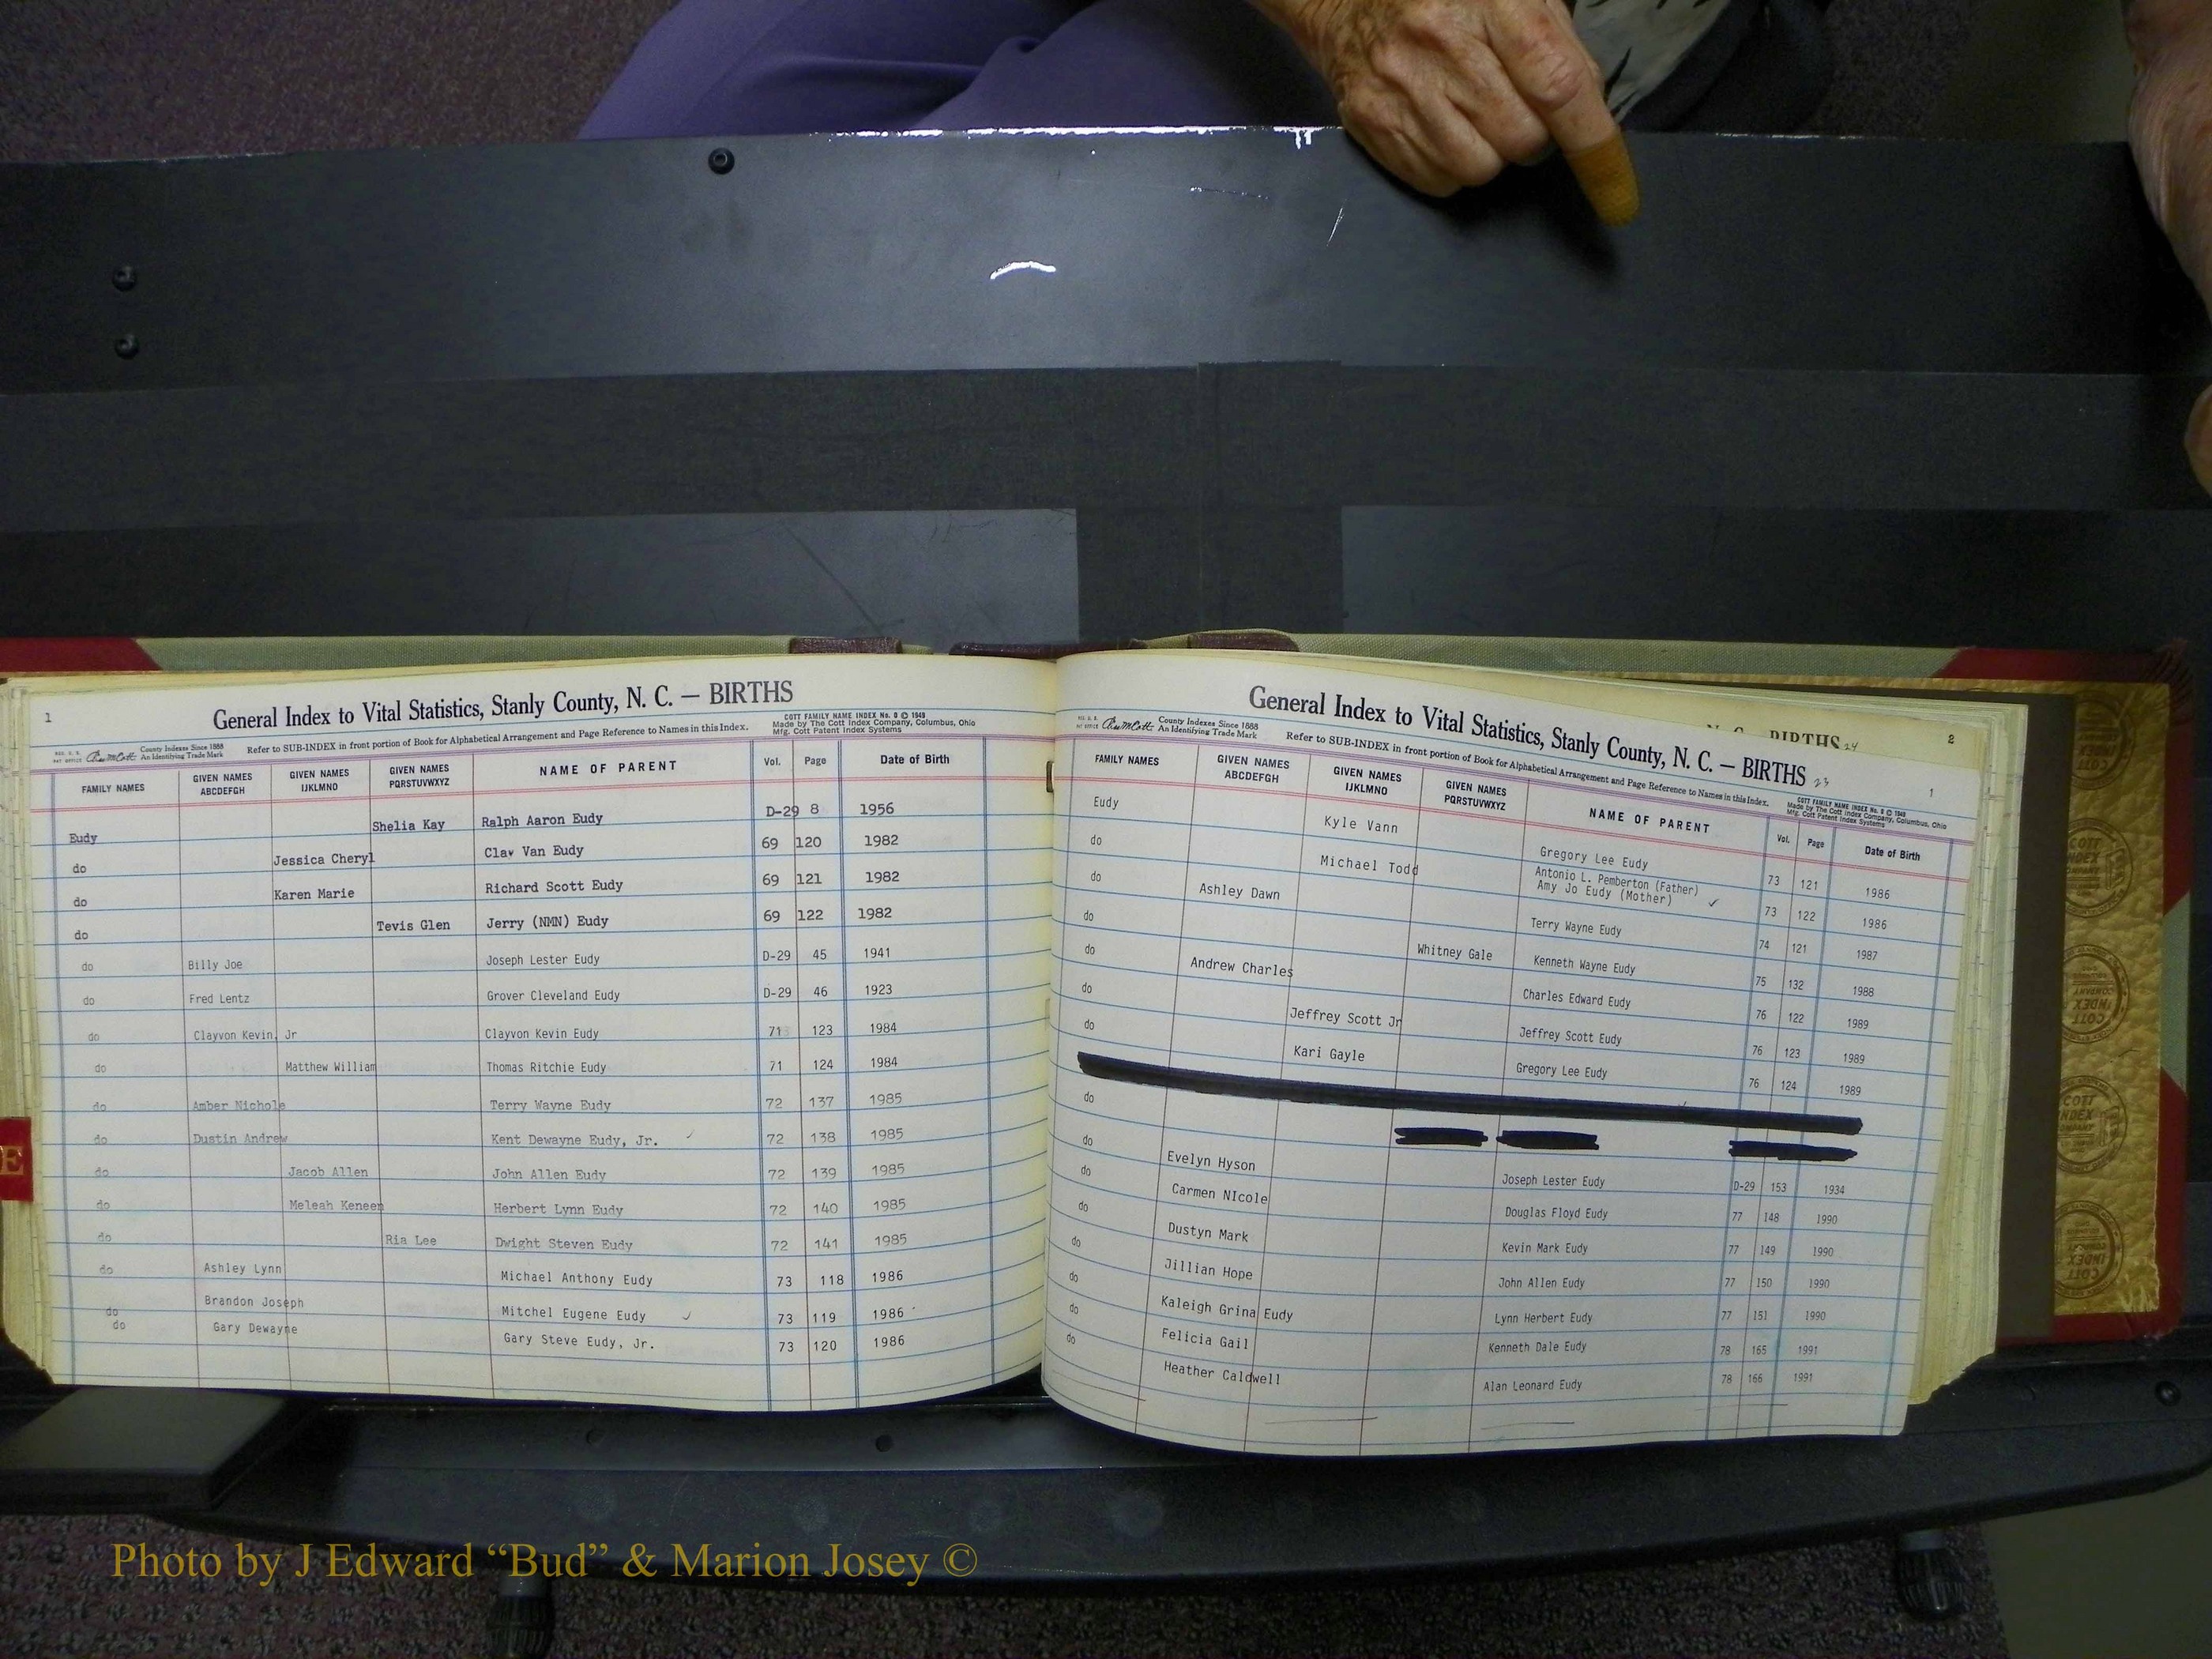 1
General Index to Vital Statistics, Stanly County, N. C. — BIRTHS
COTT FAMILY NAME INDEX No. 0 © 1949
Made by The Cott Index Company, Columbus, Ohio
Mfg. Cott Patent Index Systems
County Indexes Since 1888
An Identifying Trade Mark
Refer to SUB-INDEX in front portion of Book for Alphabetical Arrangement and Page Reference to Names in this Index.
FAMILY NAMES GIVEN NAMES ABCDEFGH GIVEN NAMES IJKLMNO GIVEN NAMES PQRSTUVWXYZ NAME OF PARENT Vol. Page Date of Birth
Eudy Shelia Kay Ralph Aaron Eudy D-29 8 1956
do Jessica Cheryl Clay Van Eudy 69 120 1982
do Karen Marie Richard Scott Eudy 69 121 1982
do Tevis Glen Jerry (NMN) Eudy 69 122 1982
do Billy Joe Joseph Lester Eudy D-29 45 1941
do Fred Lentz Grover Cleveland Eudy D-29 46 1923
do Clayvon Kevin, Jr Clayvon Kevin Eudy 71 123 1984
do Matthew William Thomas Ritchie Eudy 71 124 1984
do Amber Nichole Terry Wayne Eudy 72 137 1985
do Dustin Andrew Kent Dewayne Eudy, Jr. ✓ 72 138 1985
do Jacob Allen John Allen Eudy 72 139 1985
do Meleah Keneen Herbert Lynn Eudy 72 140 1985
do Ria Lee Dwight Steven Eudy 72 141 1985
do Ashley Lynn Michael Anthony Eudy 73 118 1986
do Brandon Joseph Mitchel Eugene Eudy ✓ 73 119 1986
do Gary Dewayne Gary Steve Eudy, Jr. 73 120 1986
E
BIRTHS 24
2
General Index to Vital Statistics, Stanly County, N. C. — BIRTHS 23
1
County Indexes Since 1888
An Identifying Trade Mark
Refer to SUB-INDEX in front portion of Book for Alphabetical Arrangement and Page Reference to Names in this Index.
COTT FAMILY NAME INDEX No. 0 © 1949
Made by The Cott Index Company, Columbus, Ohio
Mfg. Cott Patent Index Systems
FAMILY NAMES GIVEN NAMES ABCDEFGH GIVEN NAMES IJKLMNO GIVEN NAMES PQRSTUVWXYZ NAME OF PARENT Vol. Page Date of Birth
Eudy Kyle Vann Gregory Lee Eudy 73 121 1986
do Michael Todd Antonio L. Pemberton (Father)
Amy Jo Eudy (Mother) ✓ 73 122 1986
do Ashley Dawn Terry Wayne Eudy 74 121 1987
do Whitney Gale Kenneth Wayne Eudy 75 132 1988
do Andrew Charles Charles Edward Eudy 76 122 1989
do Jeffrey Scott Jr Jeffrey Scott Eudy 76 123 1989
do Kari Gayle Gregory Lee Eudy 76 124 1989
do
do Evelyn Hyson Joseph Lester Eudy D-29 153 1934
do Carmen NIcole Douglas Floyd Eudy 77 148 1990
do Dustyn Mark Kevin Mark Eudy 77 149 1990
do Jillian Hope John Allen Eudy 77 150 1990
do Kaleigh Grina Eudy Lynn Herbert Eudy 77 151 1990
do Felicia Gail Kenneth Dale Eudy 78 165 1991
do Heather Caldwell Alan Leonard Eudy 78 166 1991
COTT INDEX COMPANY
Photo by J Edward “Bud” & Marion Josey ©